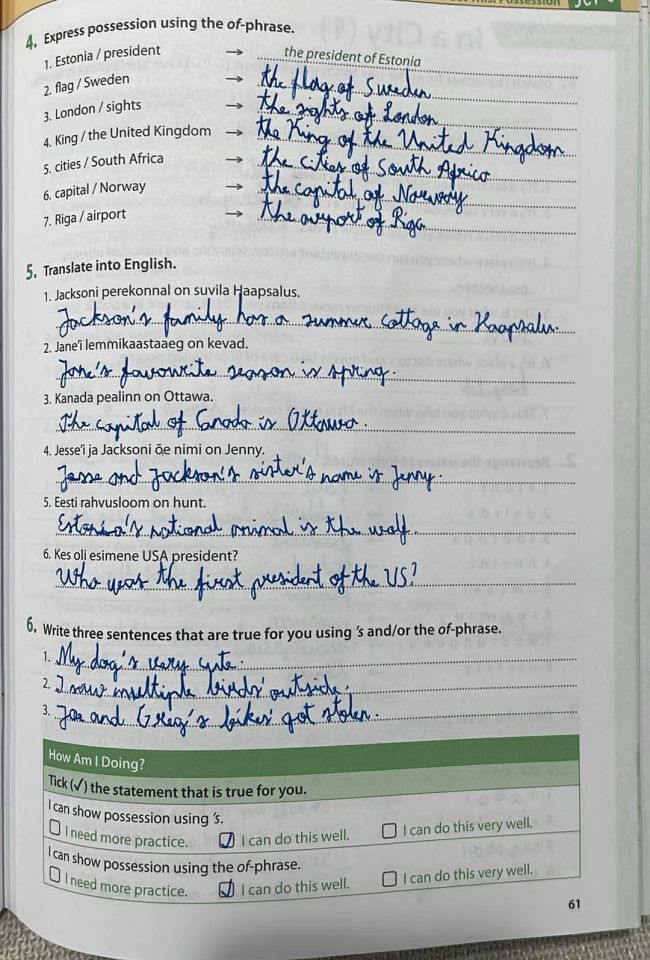 4. Express possession using the of-phrase.
1. Estonia / president → the president of Estonia
2. flag / Sweden → the flag of Sweden
3. London / sights → the sights of London
4. King / the United Kingdom → the King of the United Kingdom
5. cities / South Africa → the cities of South Africa
6. capital / Norway → the capital of Norway
7. Riga / airport → the airport of Riga
5. Translate into English.
1. Jacksoni perekonnal on suvila Haapsalus.
Jackson's family has a summer cottage in Haapsalu.
2. Jane'i lemmikaastaaeg on kevad.
Jane's favourite season is spring.
3. Kanada pealinn on Ottawa.
The capital of Canada is Ottawa.
4. Jesse'i ja Jacksoni õe nimi on Jenny.
Jesse and Jackson's sister's name is Jenny.
5. Eesti rahvusloom on hunt.
Estonia's national animal is the wolf.
6. Kes oli esimene USA president?
Who was the first president of the US?
6. Write three sentences that are true for you using 's and/or the of-phrase.
1. My dog's very cute.
2. I saw multiple birds' outside.
3. Joe and Greg's bikes' got stolen.
How Am I Doing?
Tick (✓) the statement that is true for you.
I can show possession using 's.
I need more practice. ✓ I can do this well. I can do this very well.
I can show possession using the of-phrase.
I need more practice. ✓ I can do this well. I can do this very well.
61